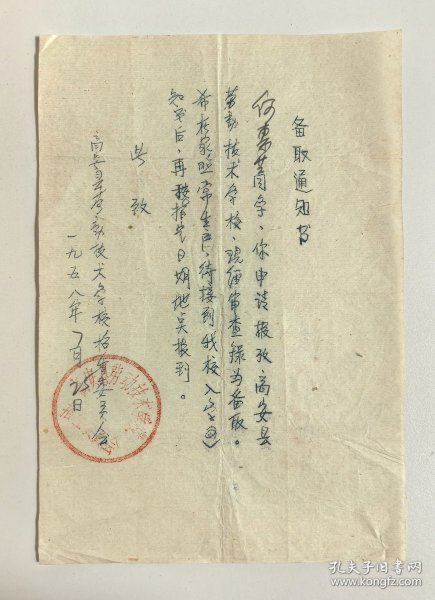 备取通知书
何东菁学、你申请报考高安县
劳动技术学校、现经审查录为备取。
希在家照常生产、待接到我校入学通
知书后，再按指定日期地点报到。
此致
高安县劳动技术学校招生委员会
一九五八年7月25日
劳动技术学
孔夫子旧书网
www.kongfz.com